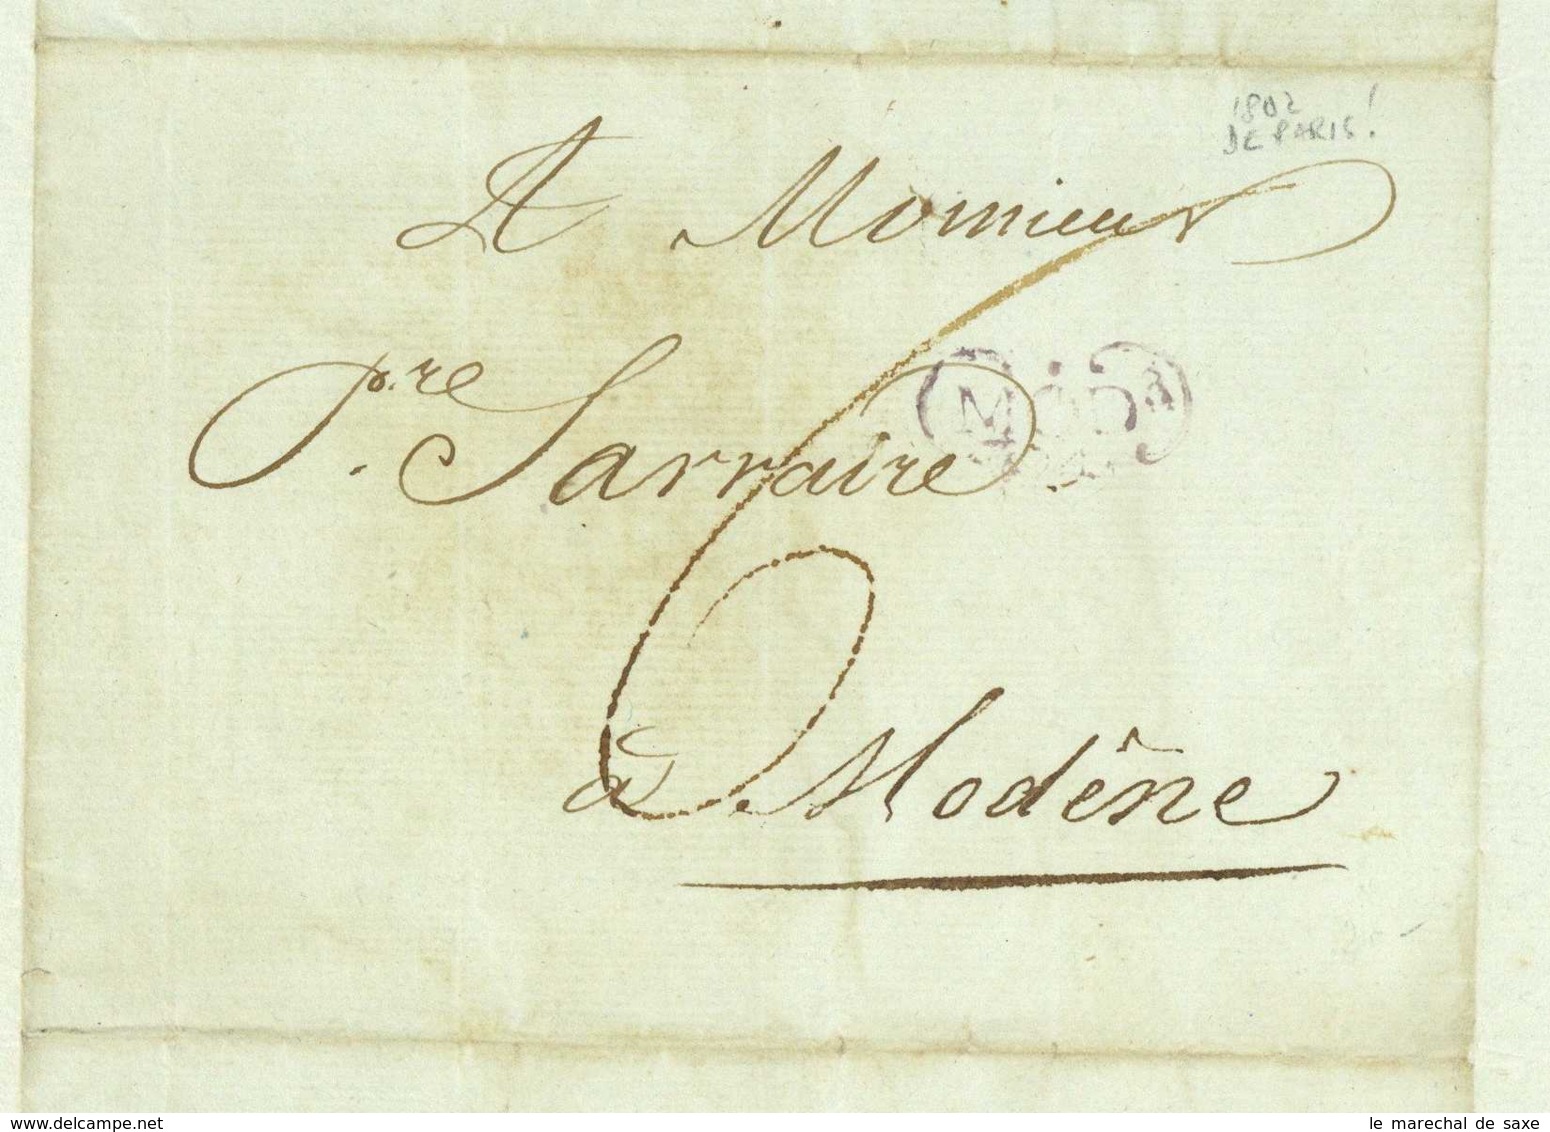 1802
DE PARIS!
A Monsieur
P.re Sarraire
6
à Modêne
delcampe.net
le marechal de saxe